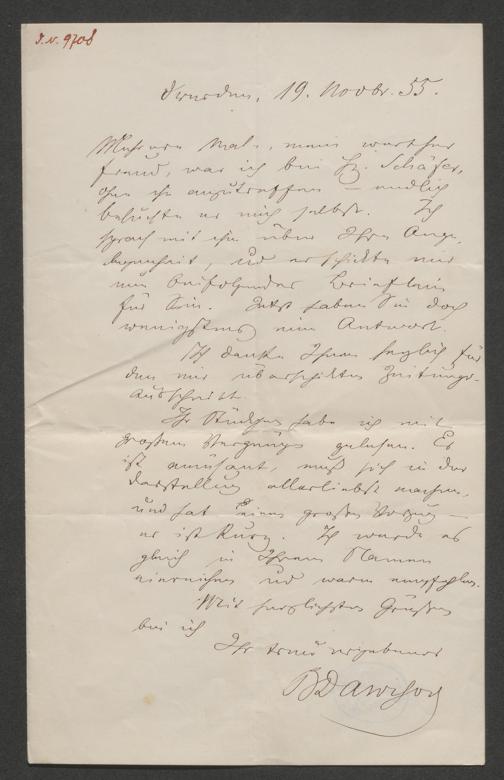 J.N. 9708
Dresden, 19. Novbr. 55.
Mehrere Mal, mein werther
Freund, war ich bei H. Schäfer,
ohne ihn anzutreffen – endlich
besuchte er mich selbst. Ich
sprach mit ihm über Ihre Ange-
legenheit, und er schickte mir
nun beifolgendes Brieflein
für Sie. Jetzt haben Sie doch
wenigstens eine Antwort.
Ich danke Ihnen herzlich für
den mir überschickten Zeitungs-
ausschnitt.
Ihr Stückchen habe ich mit
großem Vergnügen gelesen. Es
ist amüsant, muß sich in der
Darstellung allerliebst machen,
und hat einen großen Vorzug –
er ist kurz. Ich werde es
gleich in Ihrem Namen
einreichen und warm empfehlen.
Mit herzlichsten Grüßen
bin ich
Ihr treu ergebener
BDawison